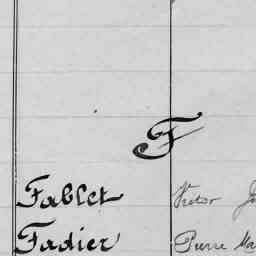 F
Fablet Victor
Fadier Pierre Ma